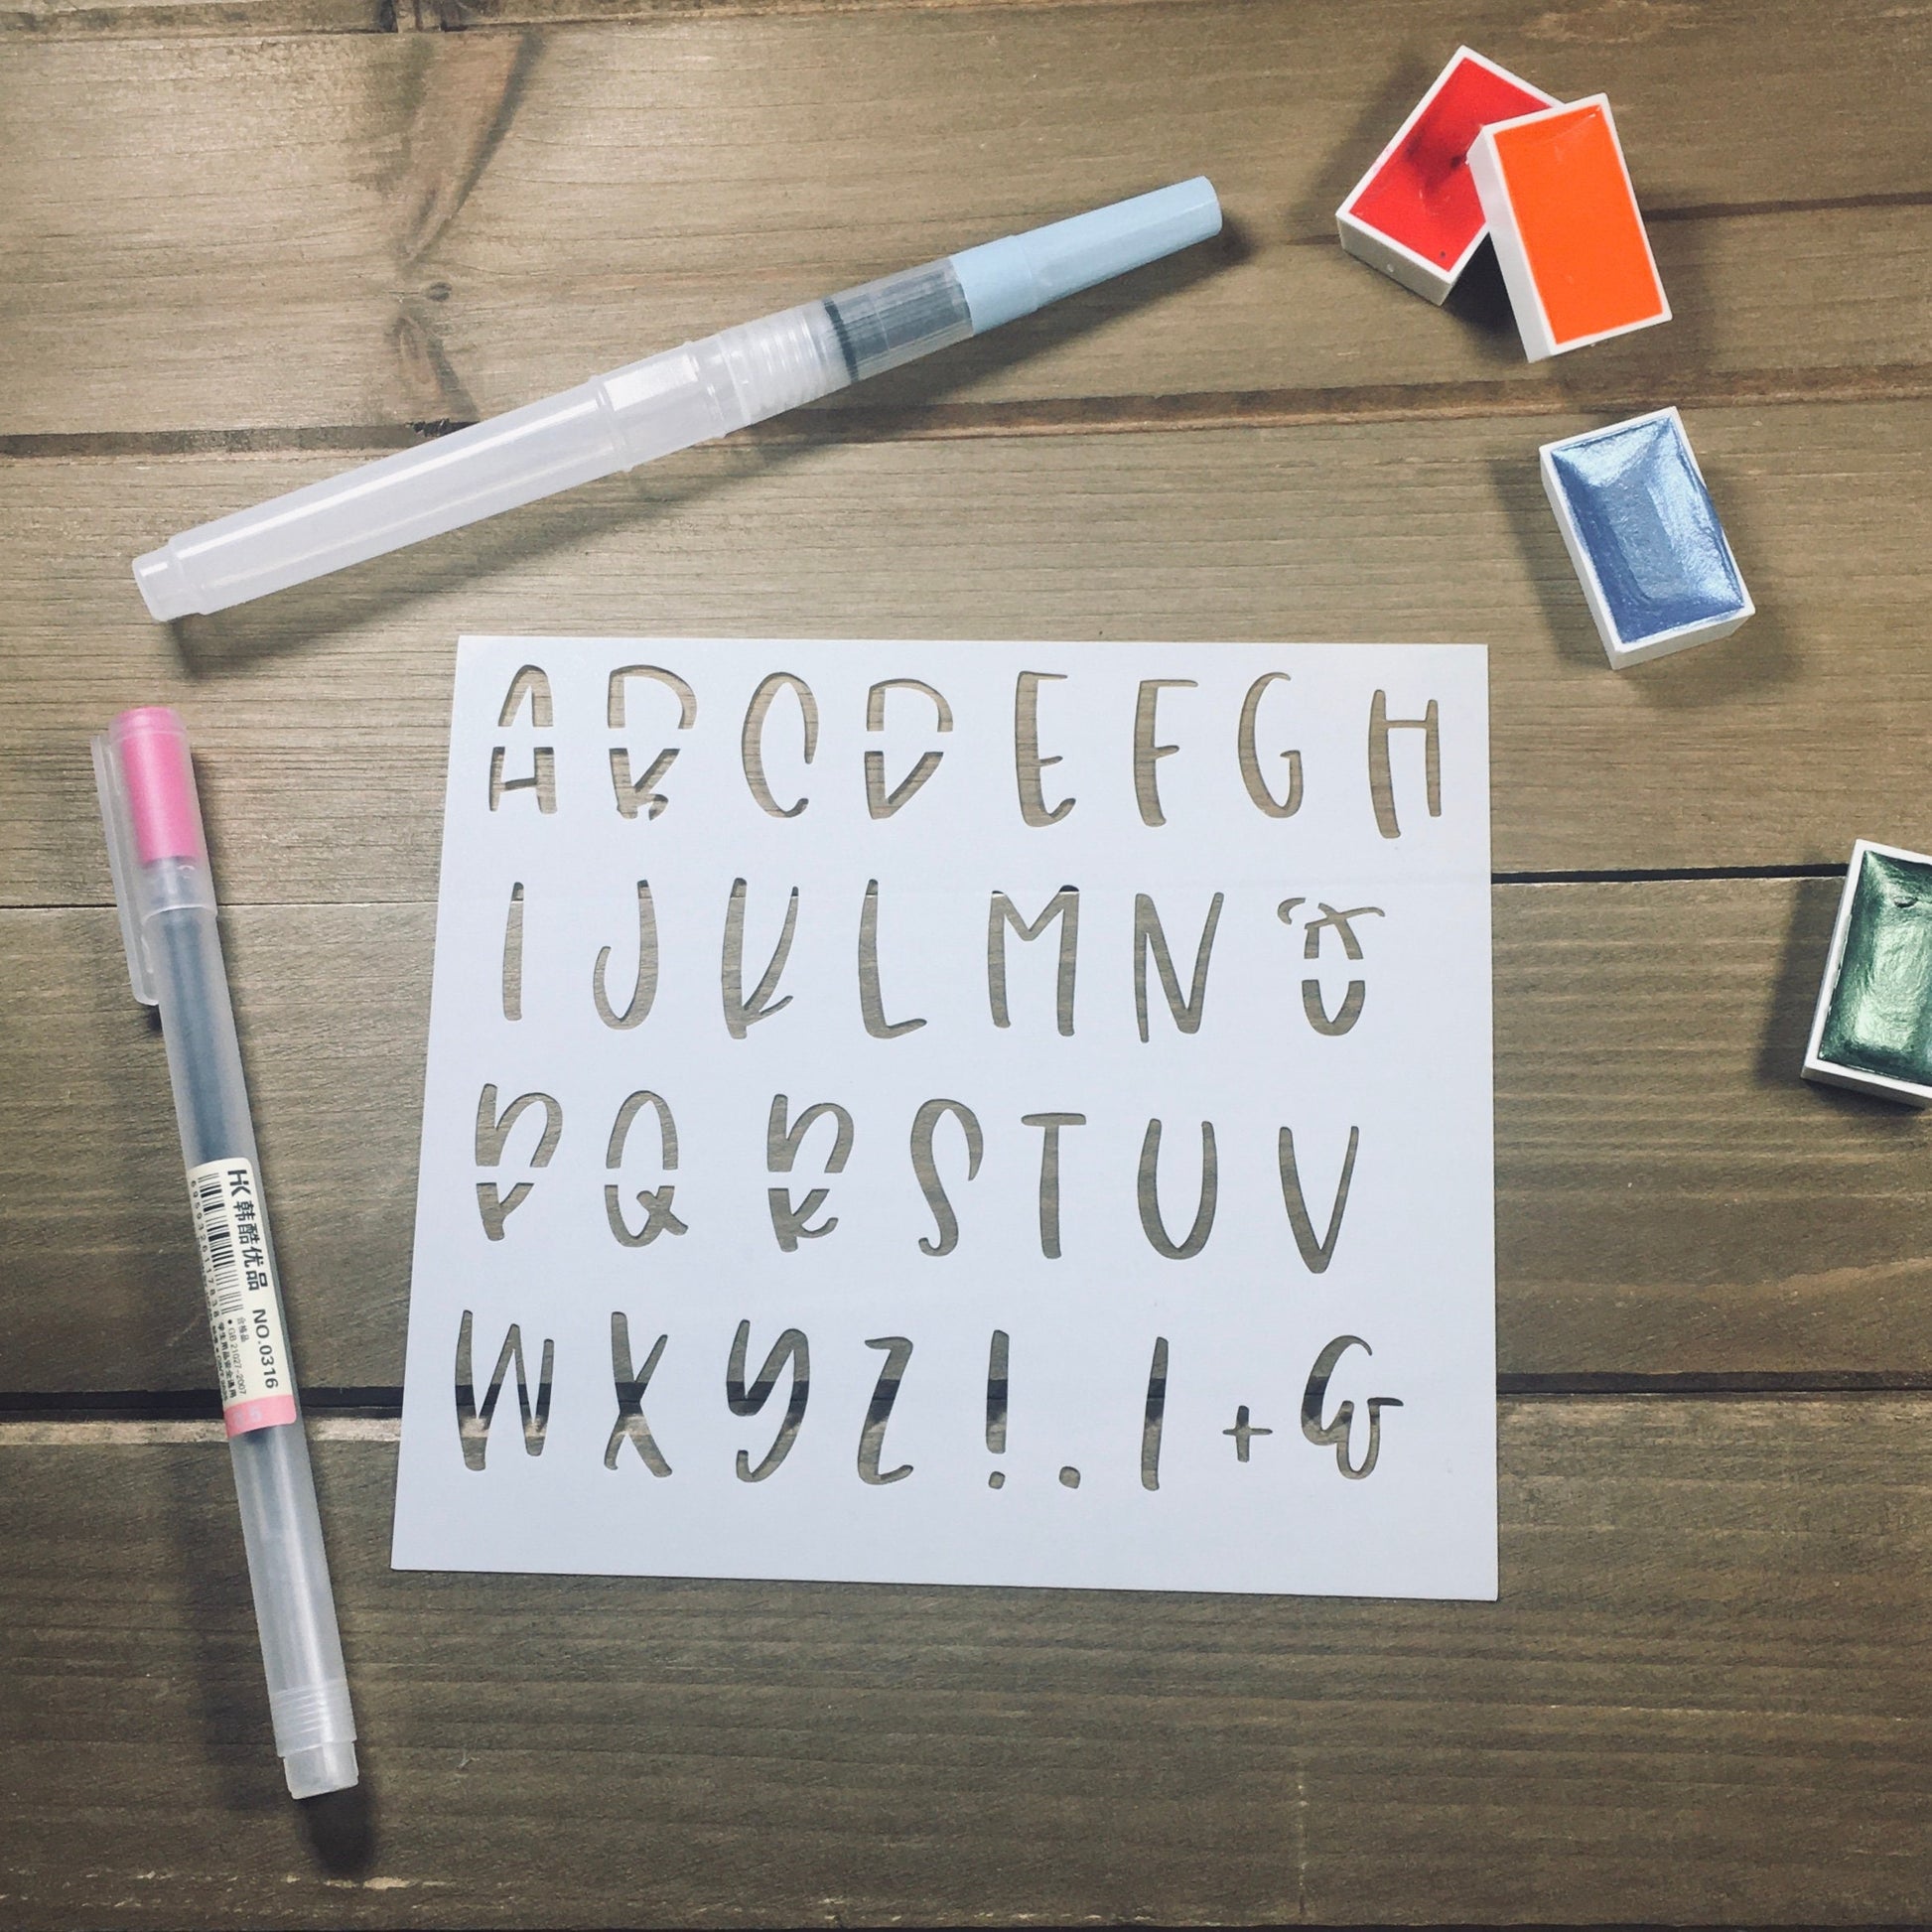 A B C D E F G H
I J K L M N O
P Q R S T U V
W X Y Z ! . I + &
HK 韩酷优品 NO.0316
合格品
GB 21027-2007